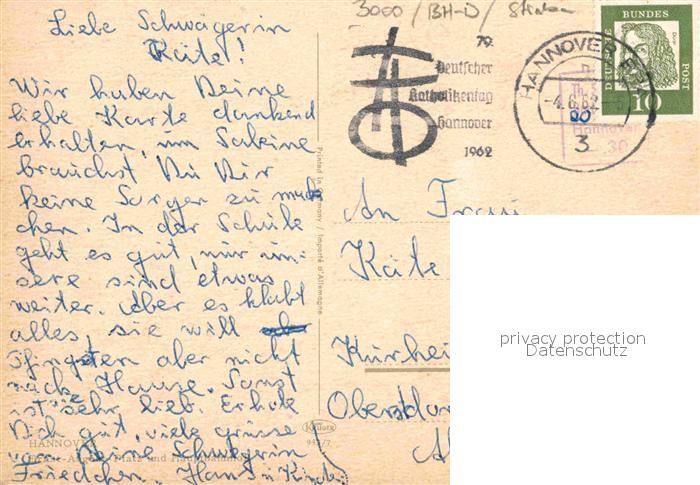 Liebe Schwägerin
Käte!
Wir haben Deine
liebe Karte dankend
erhalten, um Sabine
brauchst Du Dir
keine Sorgen zu mach
chen. In der Schule
geht es gut, nur un-
sere sind etwas
weiter. Aber es klabt
alles, sie will
Pfingsten aber nicht
nach Hause. Sonst
ist sie sehr lieb. Erhole
Dich gut, viele grüsse
von Deine Schwegerin
Friedchen. Hans u. Kinder
3000 / BH-D /
79.
Deutscher
Katholikentag
Hannover
1962
HANNOVER
-4.6.62.-5
20
3
DEUTSCHE
BUNDES
POST
10
Hannover
30
An Frau
Käte
Kurhei
Oberstdor
Printed in Germany / Importé d'Allemagne
Krüger
HANNOVER
Ernst-August-Platz und Hauptbahnhof
privacy protection
Datenschutz